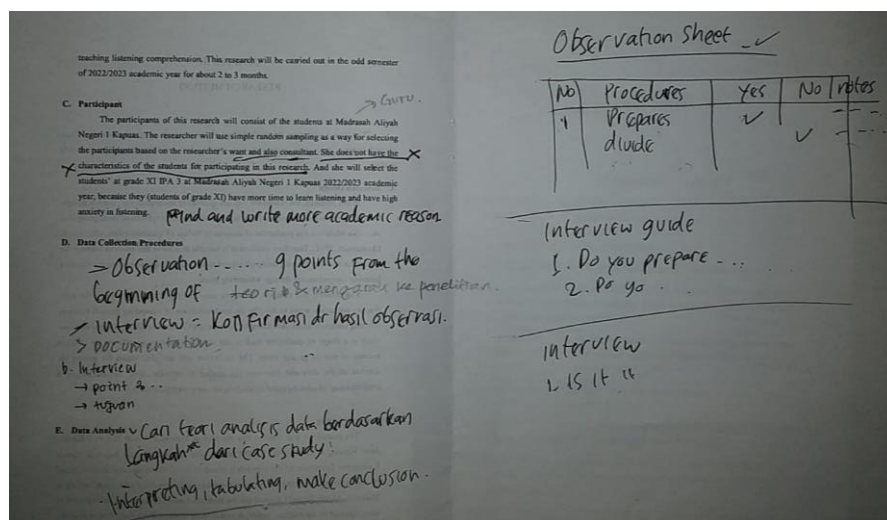 teaching listening comprehension. This research will be carried out in the odd semester
of 2022/2023 academic year for about 2 to 3 months.
C. Participant
Guru.
The participants of this research will consist of the students at Madrasah Aliyah
Negeri 1 Kapuas. The researcher will use simple random sampling as a way for selecting
the participants based on the researcher's want and also consultant. She does not have the
characteristics of the students for participating in this research. And she will select the
students' at grade XI IPA 3 at Madrasah Aliyah Negeri 1 Kapuas 2022/2023 academic
year, because they (students of grade XI) have more time to learn listening and have high
anxiety in listening. Find and write more academic reason
D. Data Collection Procedures
> Observation ...... 9 points from the
beginning of teori & mengarah ke penelitian.
> Interview = Konfirmasi dr hasil observasi.
> Documentation
b. Interview
→ point 2 ..
→ tujuan
E. Data Analysis Cari teori analisis data berdasarkan
langkah² dari case study:
- Interpreting, tabulating, make conclusion.
Observation sheet
No Procedures Yes No notes
1 Prepares ✓ - - -
divide ✓ - - -
Interview guide
1. Do you prepare ...
2. Do yo .
interview
1. Is it